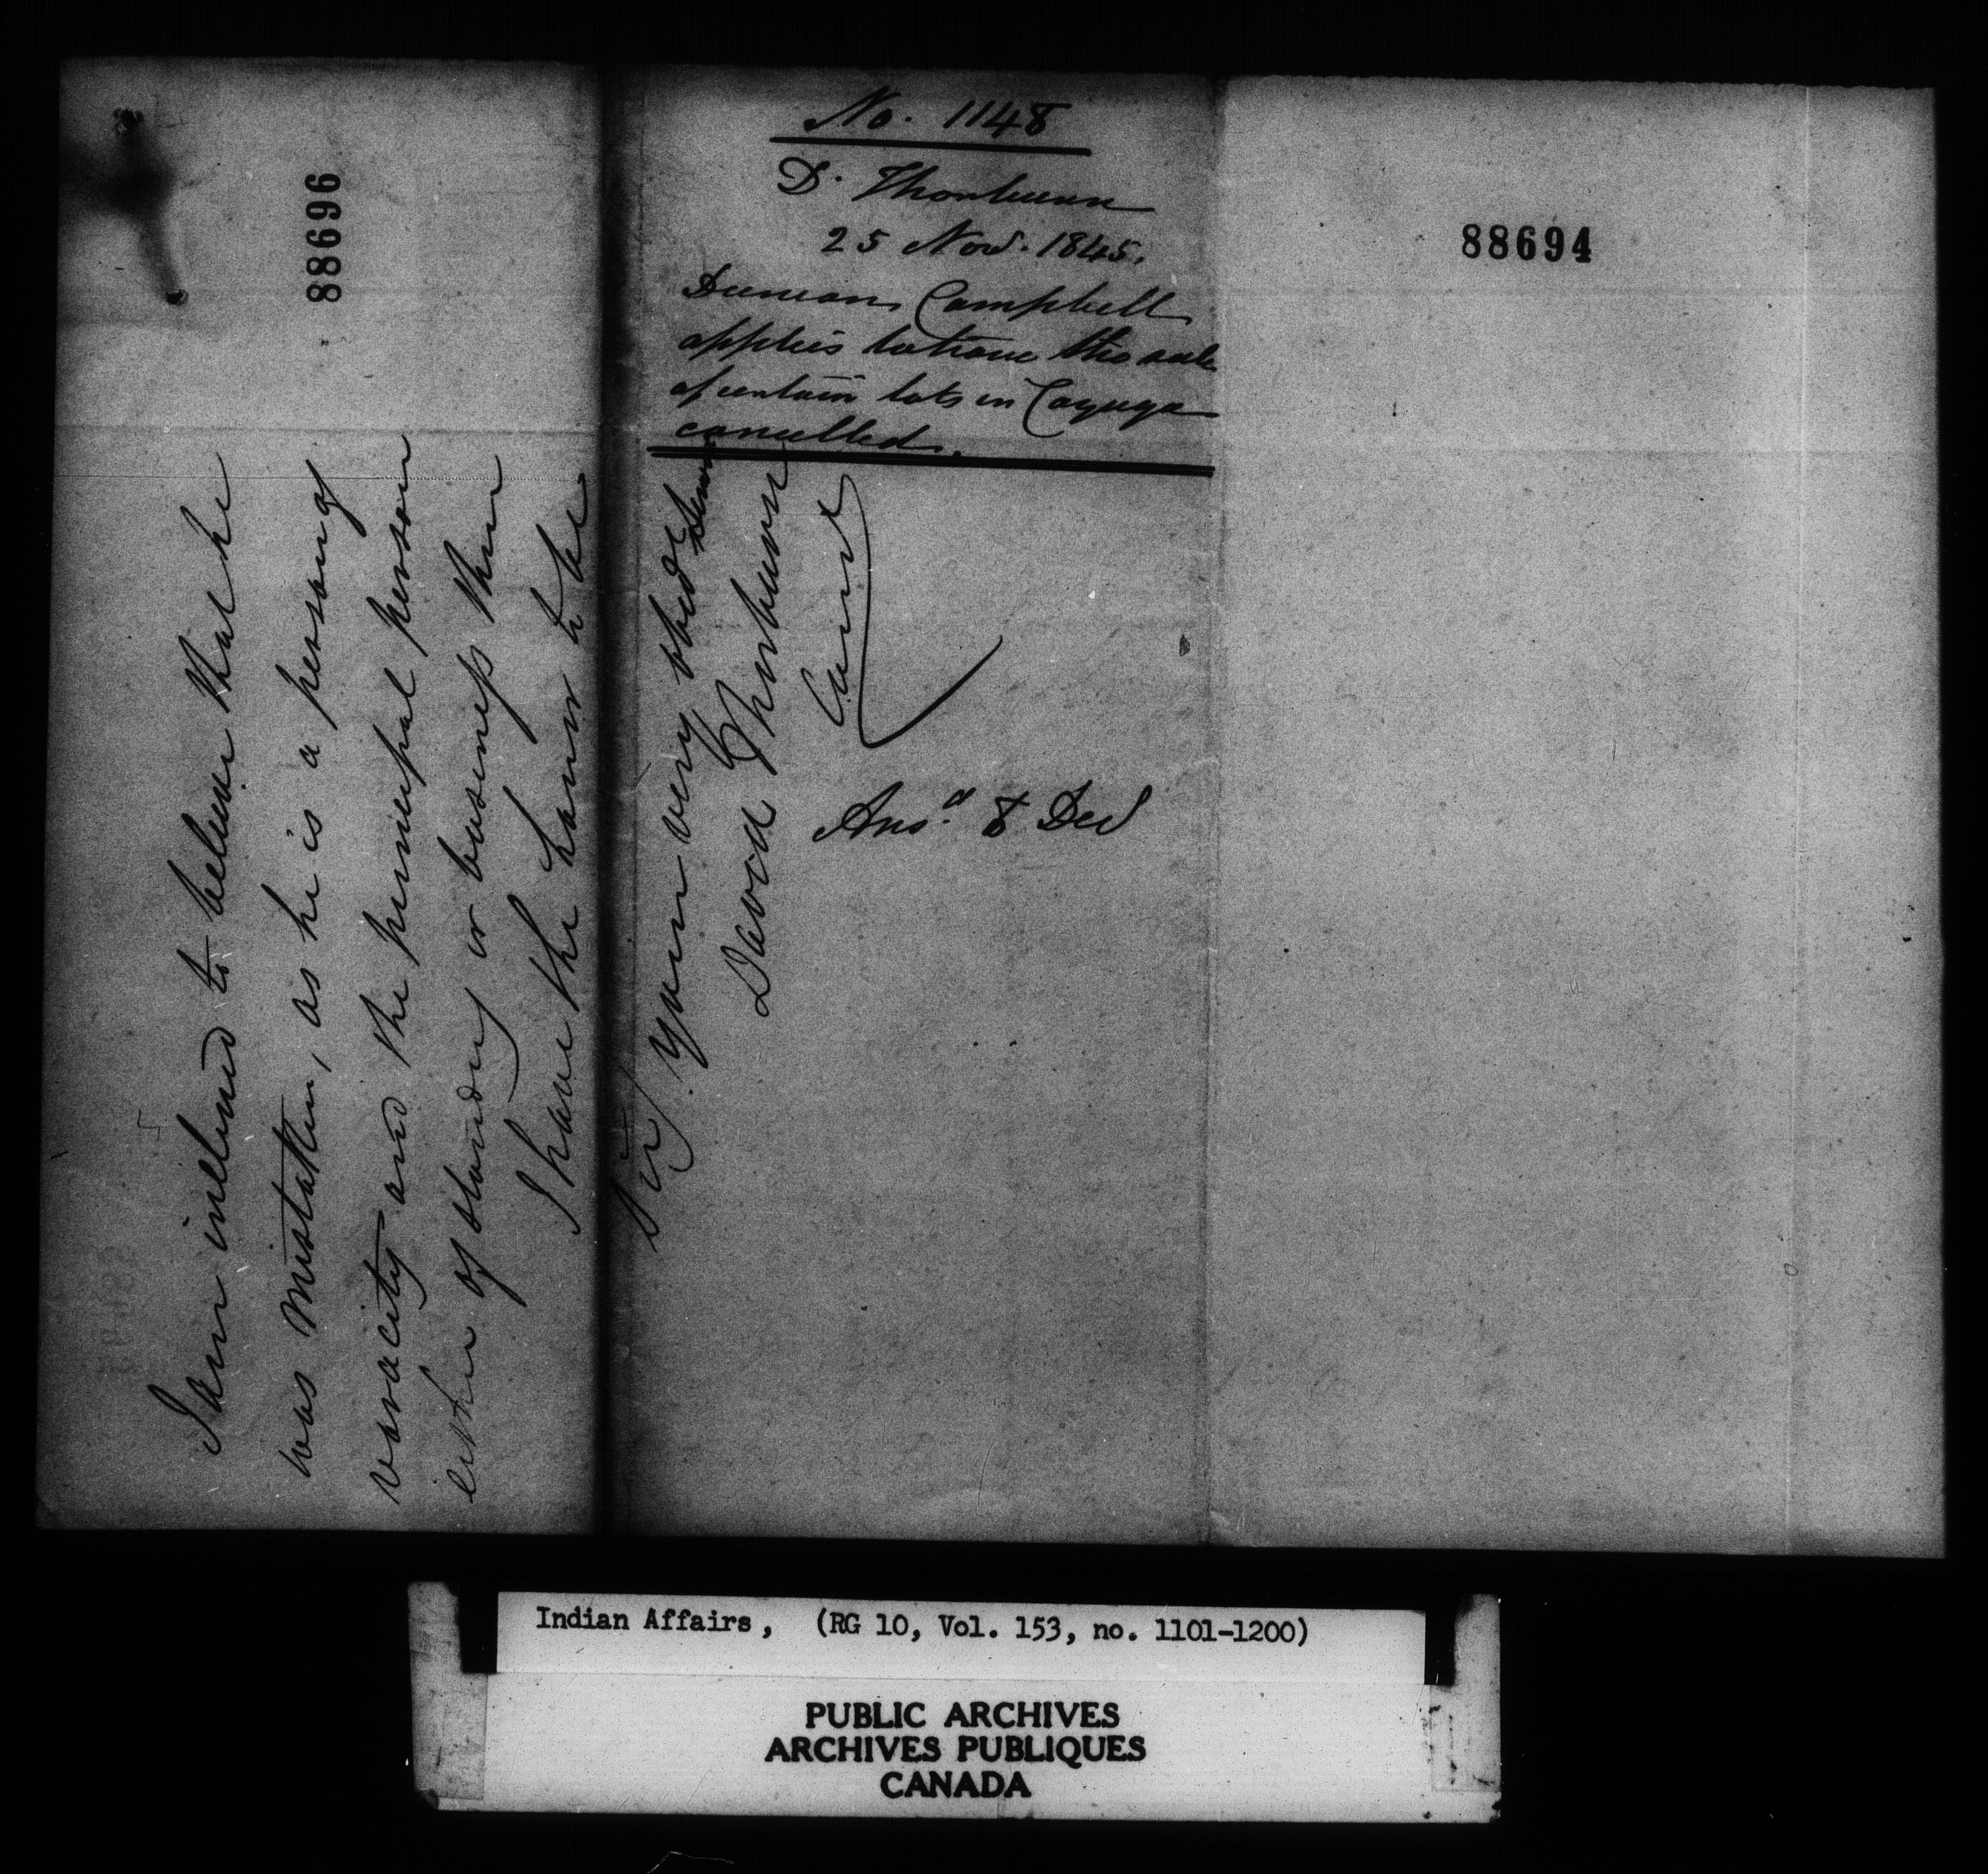 88696
I am inclined to believe that he
was mistaken, as he is a person of
veracity and the principal person
either of standing or business there
I have the honor to be
Sir,
Your very obed.t Servt
David Thorburn
Comr
No. 1148
D. Thorburn
25 Nov. 1845.
Duncan Campbell
applies to have the sale
of certain lots in Cayuga
cancelled.
Ansd. 8 Dec
88694
Indian Affairs, (RG 10, Vol. 153, no. 1101-1200)
PUBLIC ARCHIVES
ARCHIVES PUBLIQUES
CANADA